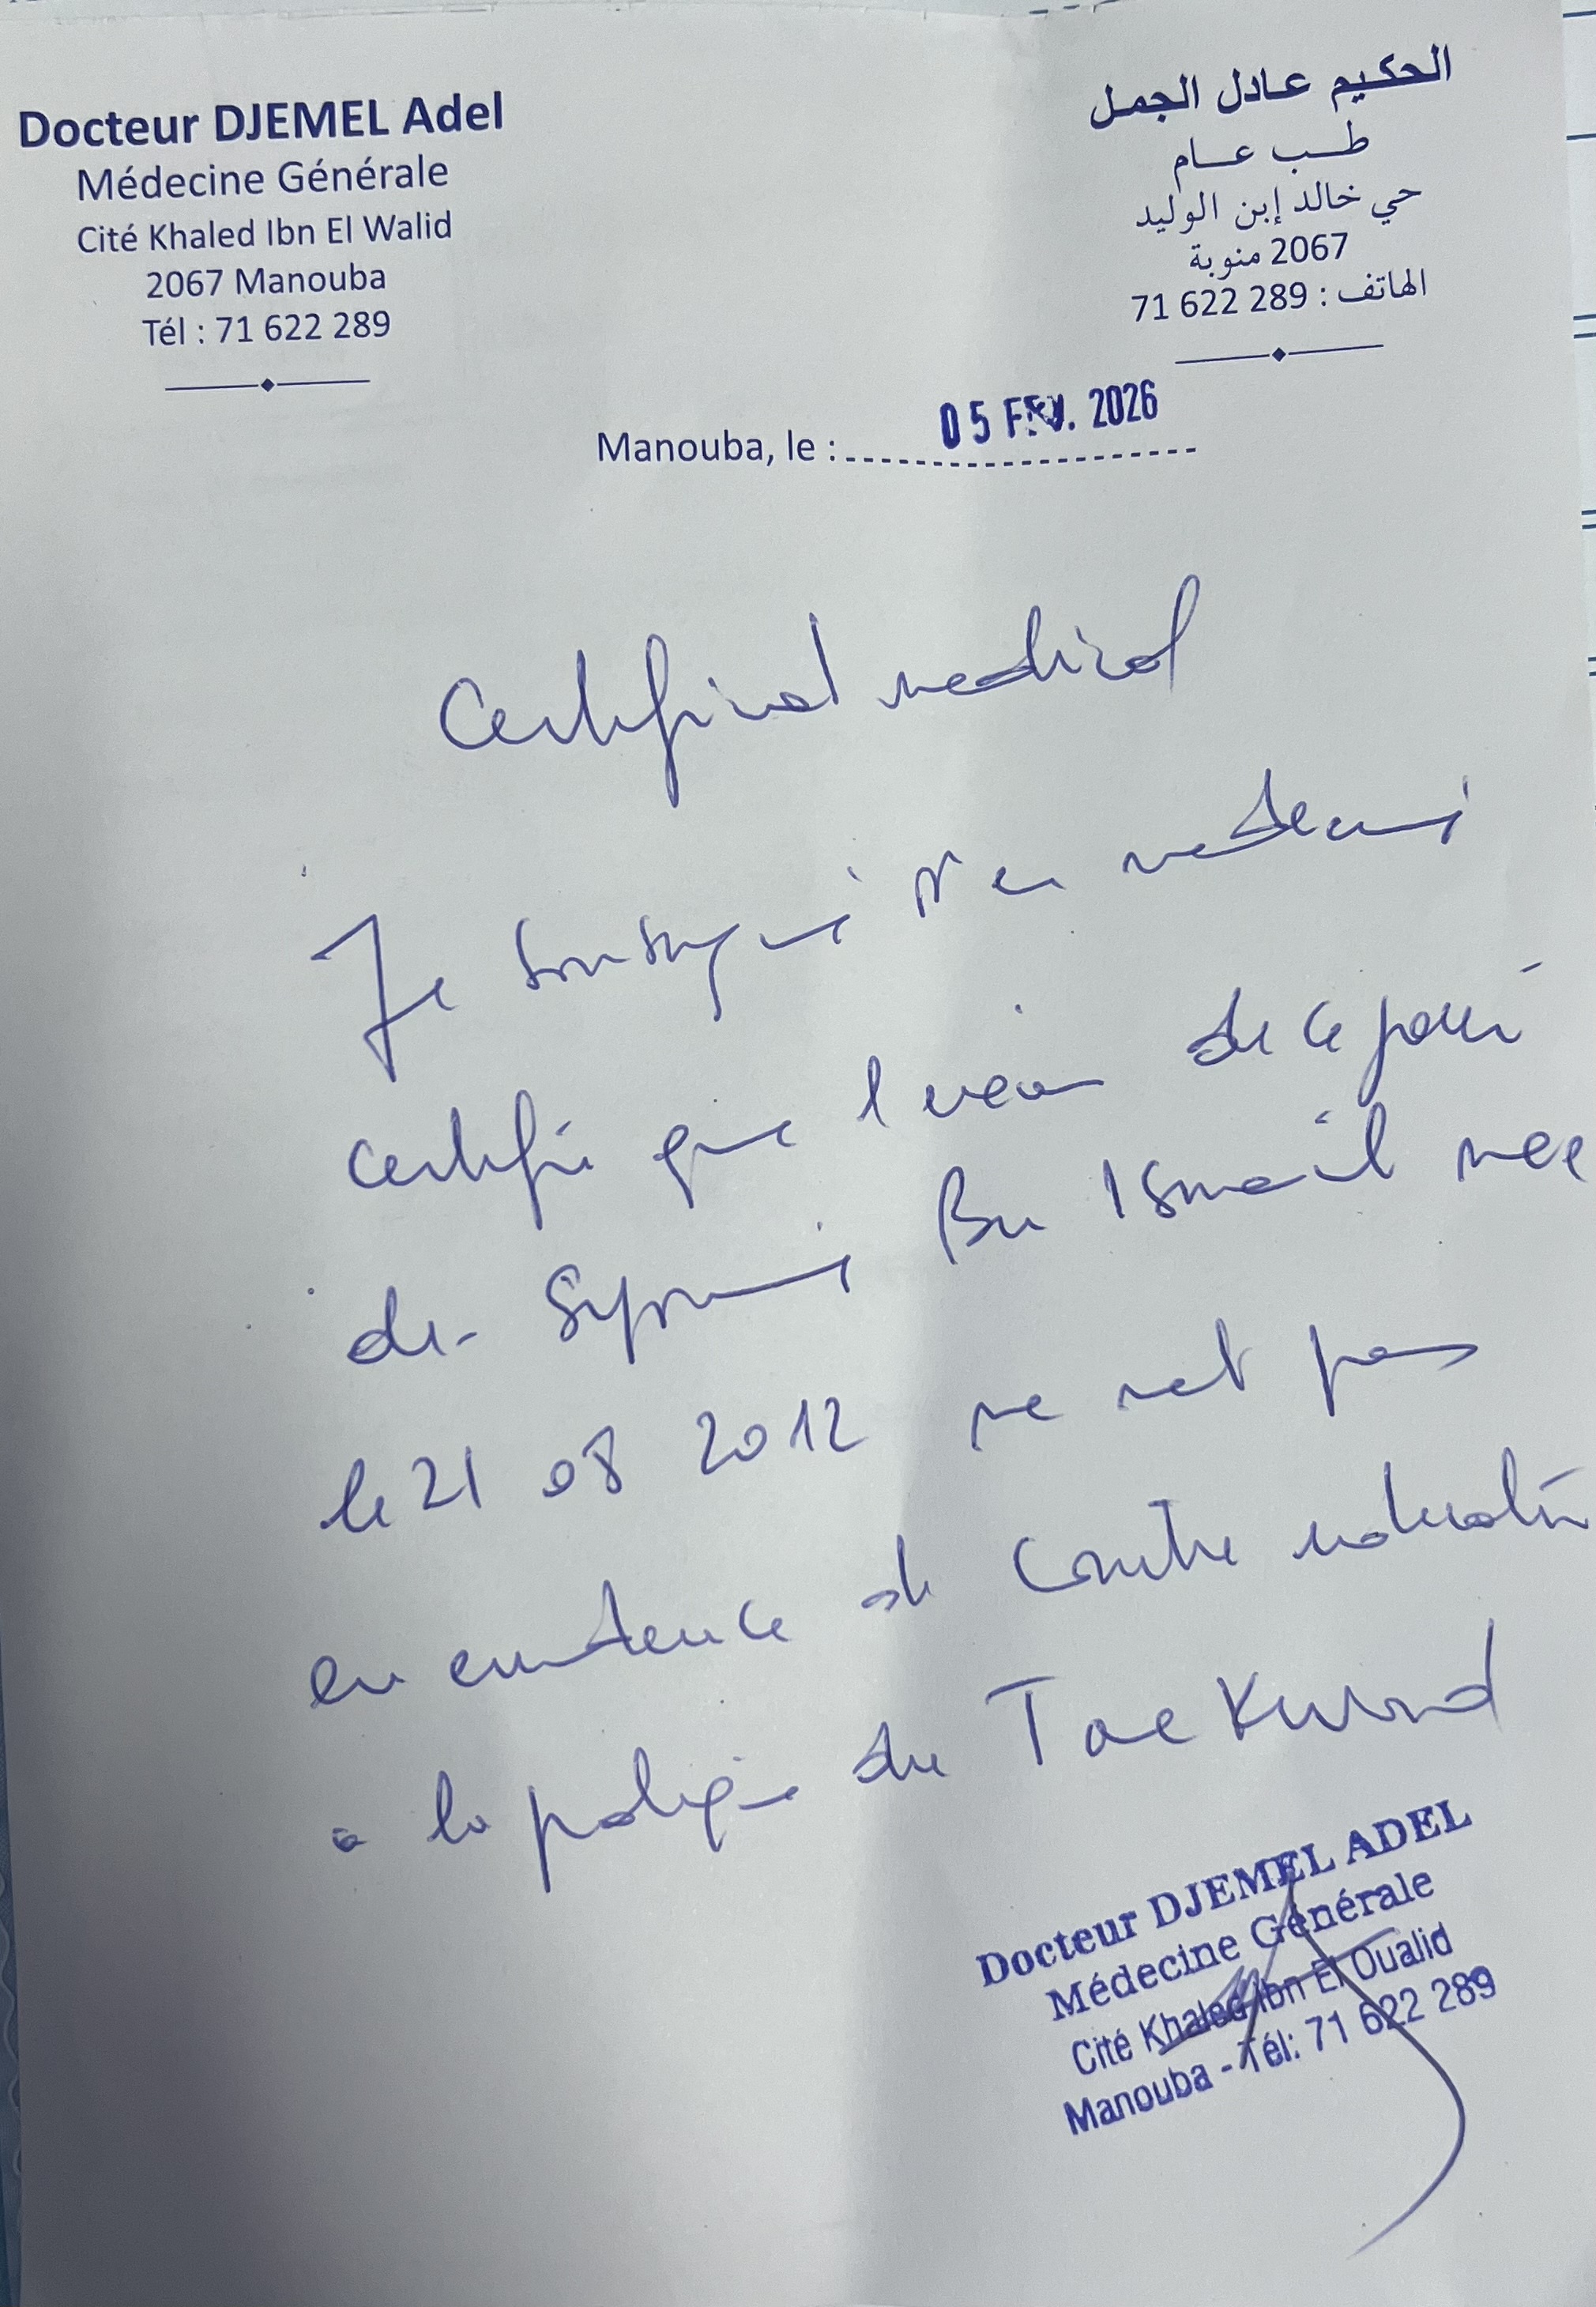 Docteur DJEMEL Adel
Médecine Générale
Cité Khaled Ibn El Walid
2067 Manouba
Tél : 71 622 289
الحكيم عادل الجمل
طب عام
حي خالد إبن الوليد
2067 منوبة
الهاتف : 289 622 71
Manouba, le : 05 FEV. 2026
Certificat medical
Je soussigné en medecine
certifie que l'examen de ce jour
de Ben Ismail nee
le 21 08 2012 ne met pas
en evidence de contre indication
a la pratique du Taekwondo
Docteur DJEMEL ADEL
Médecine Générale
Cité Khaled Ibn El Oualid
Manouba - Tél: 71 622 289